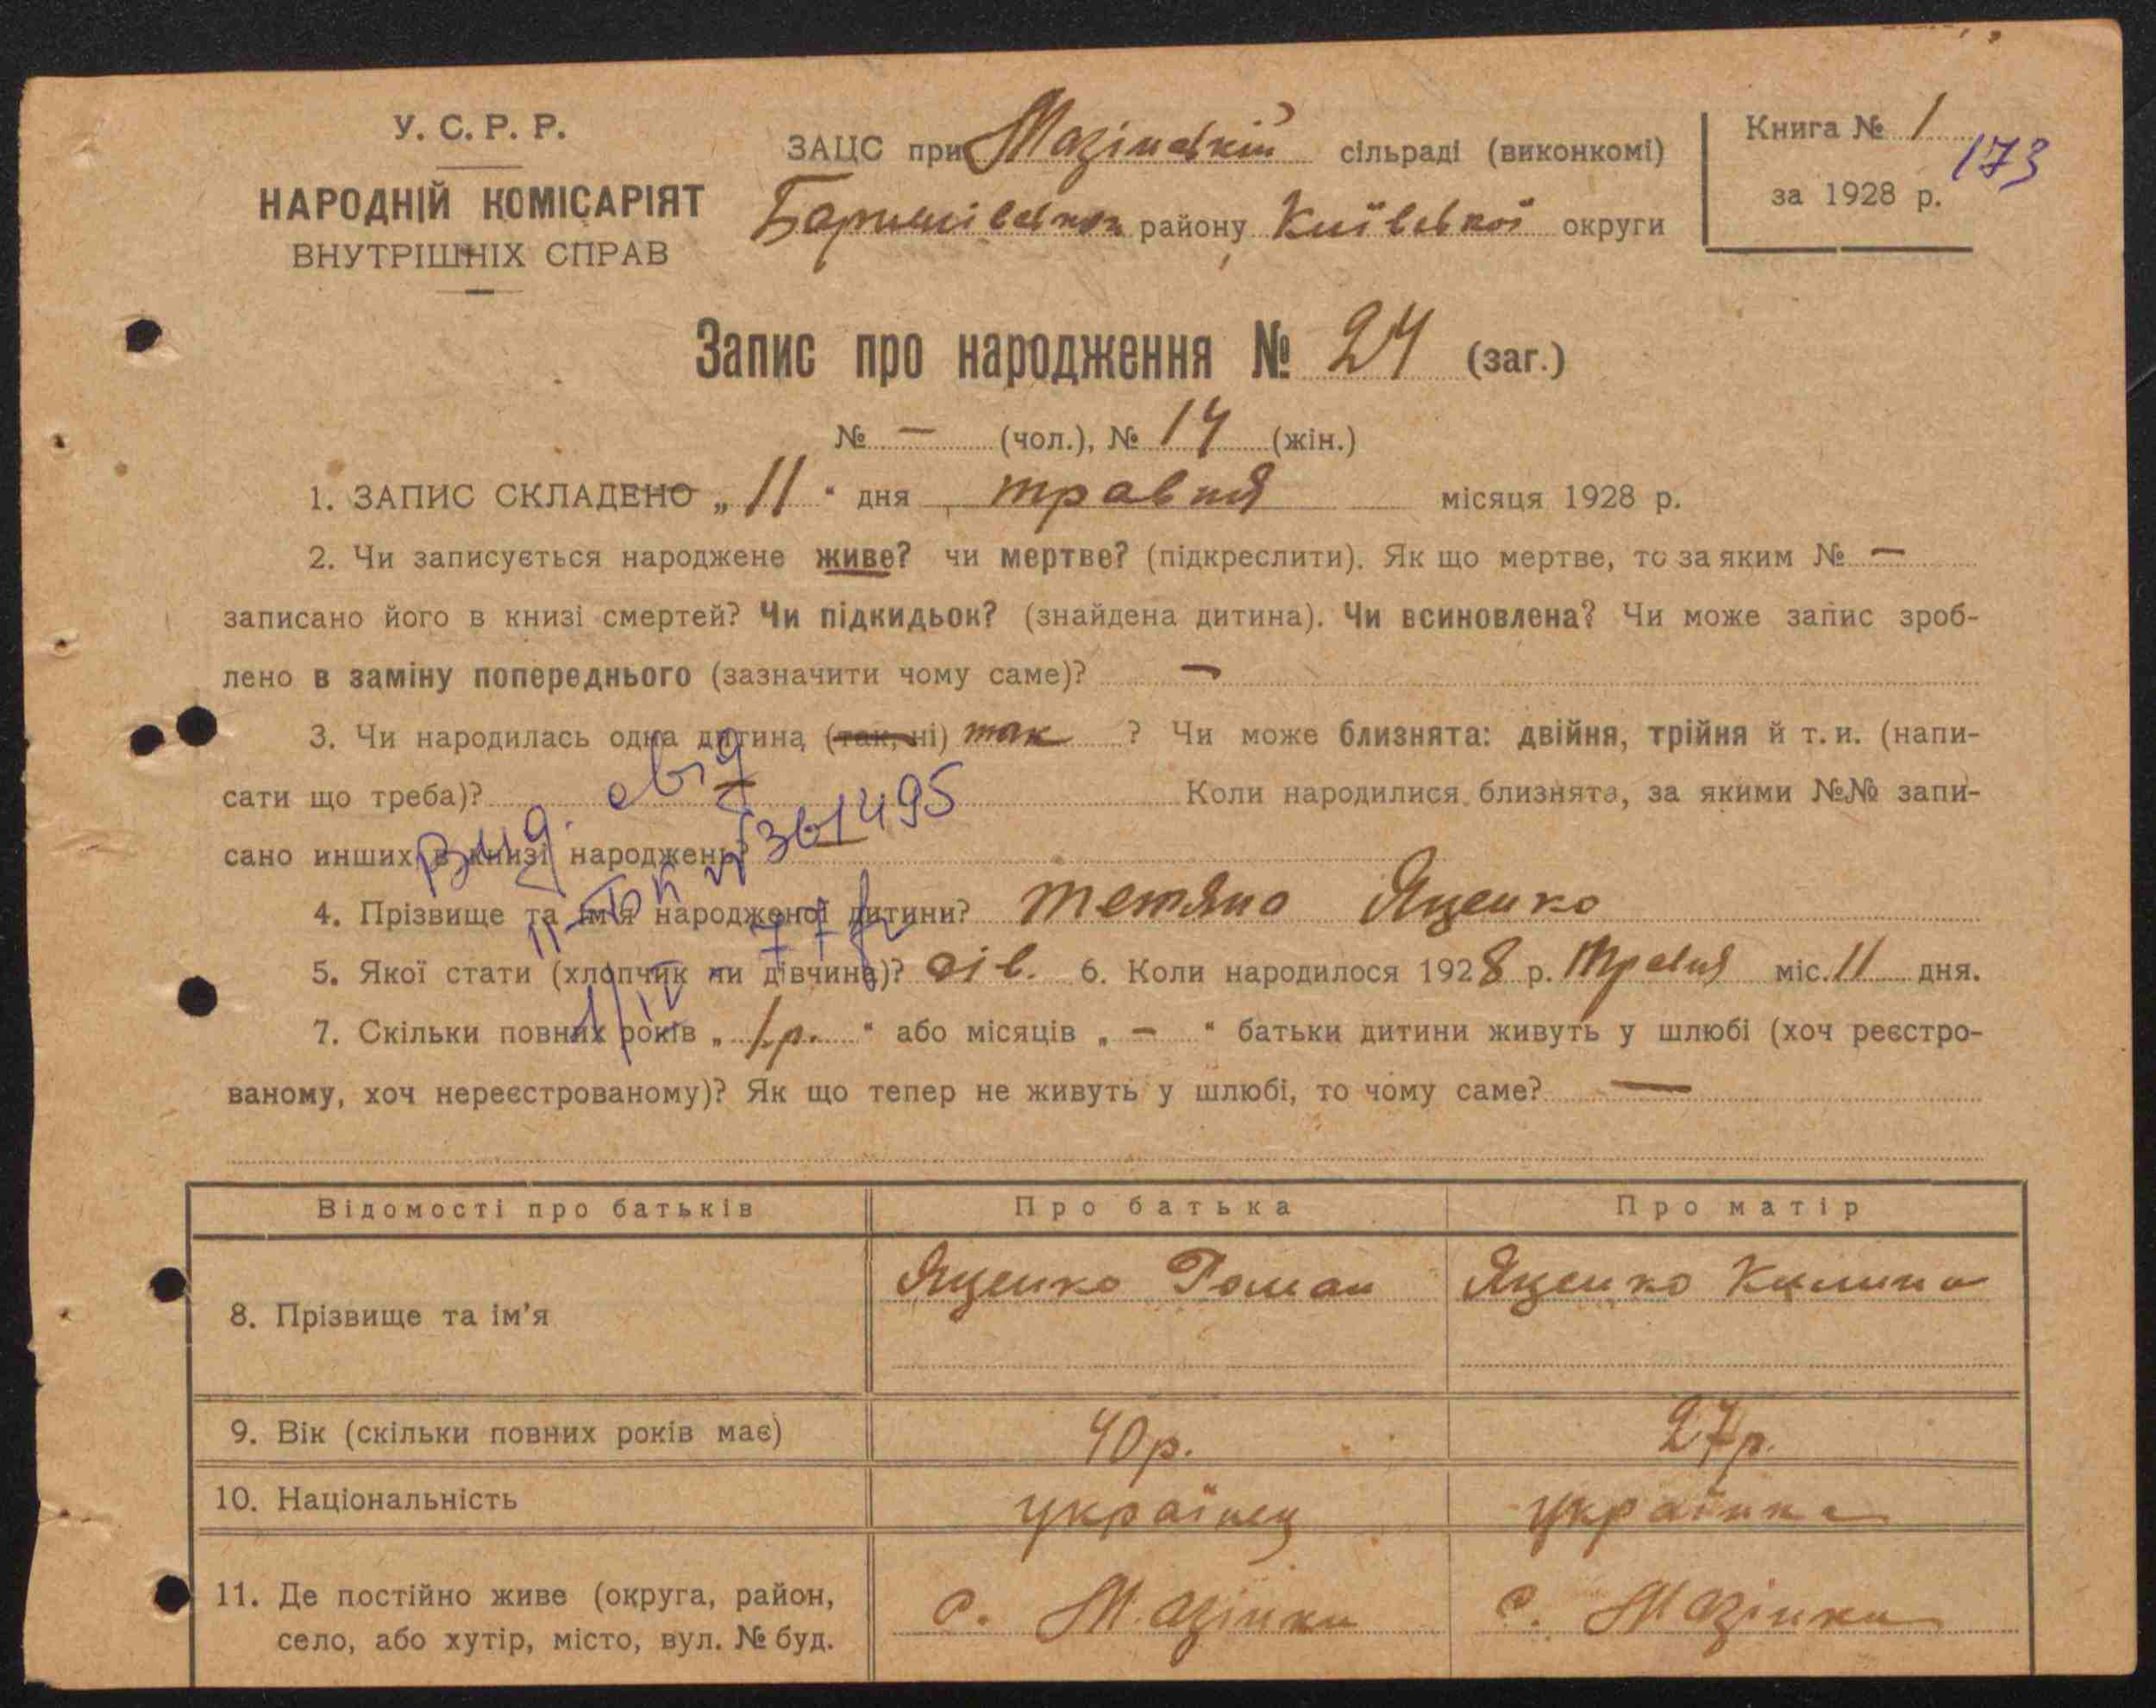 У. С. Р. Р.
НАРОДНІЙ КОМІСАРІЯТ
ВНУТРІШНІХ СПРАВ
ЗАЦС при Мазінській сільраді (виконкомі)
Баришівського району Київської округи
Книга № 1
173
за 1928 р.
Запис про народження № 24 (заг.)
№ — (чол.), № 14 (жін.)
1. ЗАПИС СКЛАДЕНО „ 11 “ дня травня місяця 1928 р.
2. Чи записується народжене живе? чи мертве? (підкреслити). Як що мертве, то за яким № —
записано його в книзі смертей? Чи підкидьок? (знайдена дитина). Чи всиновлена? Чи може запис зроб-
лено в заміну попереднього (зазначити чому саме)? —
3. Чи народилась одна дитина (так, ні) так ? Чи може близнята: двійня, трійня й т. и. (напи-
сати що треба)? — Коли народилися близнята, за якими №№ запи-
сано инших в книзі народжень?
Вид. свід
II-БК № 361495
4. Прізвище та ім'я народженої дитини? Тетяна Яценко
5. Якої стати (хлопчик чи дівчина)? дів. 6. Коли народилося 1928 р. травня міс. 11 дня.
7. Скільки повних років „ 1 р. “ або місяців „ — “ батьки дитини живуть у шлюбі (хоч реєстро-
ваному, хоч нереєстрованому)? Як що тепер не живуть у шлюбі, то чому саме? —
Відомості про батьків Про батька Про матір
8. Прізвище та ім'я Яценко Роман Яценко Килина
9. Вік (скільки повних років має) 40 р. 27 р.
10. Національність українец українка
11. Де постійно живе (округа, район,
село, або хутір, місто, вул. № буд. с. Мазінки с. Мазінки